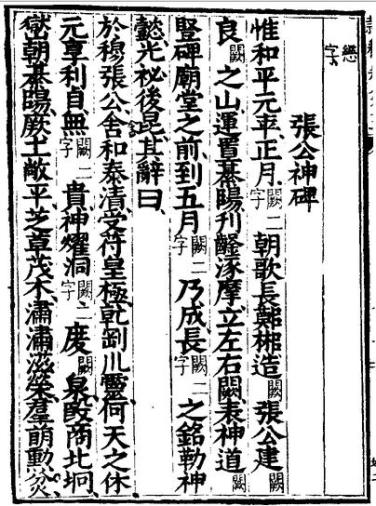 字
張公神碑
惟和平元年正月闕二字朝歌長鄭郴造闕張公建
良闕之山運置綦陽刊鑿涿摩立左右闕表神道闕
竪碑廟堂之前到五月闕二字乃成長闕二字之銘勒神
懿光祕後昆其辭曰
於穆張公含和泰清受符皇極乹剛川靈何天之休
元享利貞無闕二字貴神耀洞闕二字虔闕泉殷商北坰
朝綦陽厥土敞平芝草茂木潚潚滋榮羣萌勳